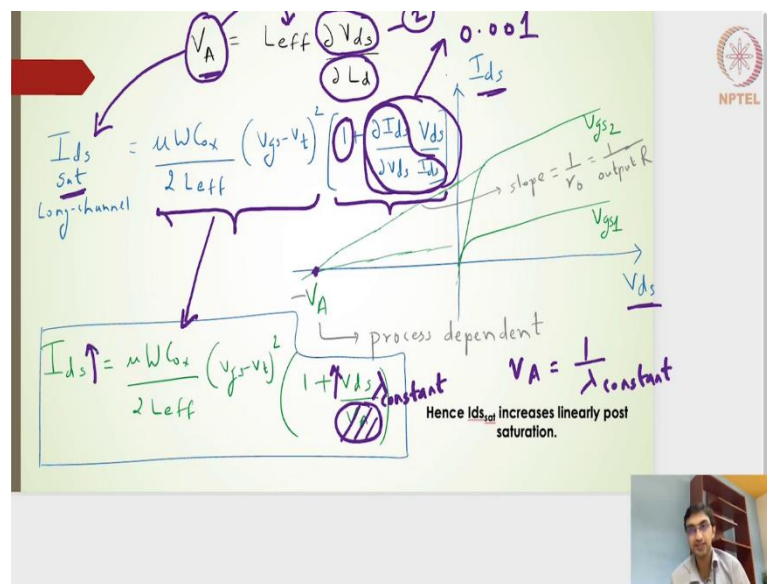 V_A = Leff ∂Vds / ∂Ld ②
0.001
NPTEL
Ids sat Long-channel = μWCox / 2Leff (Vgs-Vt)² [1 + ∂Ids/∂Vds Vds/Ids]
Ids
Vgs2
slope = 1/r₀ = 1/output R
Vgs1
Vds
-V_A
process dependent
Ids↑ = μWCox / 2Leff (Vgs-Vt)² (1 + ↑Vds/V_A) λ constant
V_A = 1/λ constant
Hence Ids_sat increases linearly post
saturation.